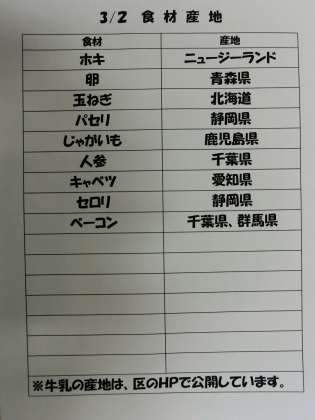 3/2 食材産地
食材 産地
ホキ ニュージーランド
卵 青森県
玉ねぎ 北海道
パセリ 静岡県
じゃがいも 鹿児島県
人参 千葉県
キャベツ 愛知県
セロリ 静岡県
ベーコン 千葉県、群馬県
※牛乳の産地は、区のHPで公開しています。